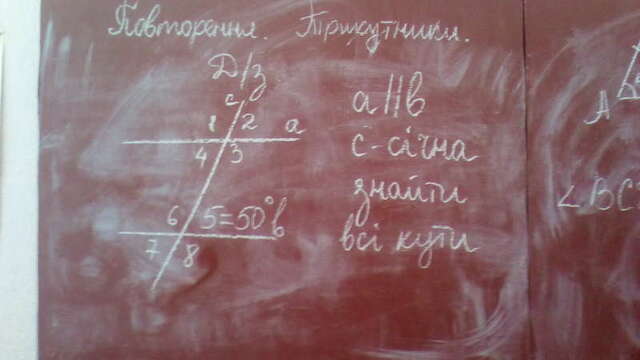 Повторення. Трикутники.
Д/з
c
1 2 a
4 3
6 5=50° в
7 8
a||в
с-січна
знайти
всі кути
A
∠BC